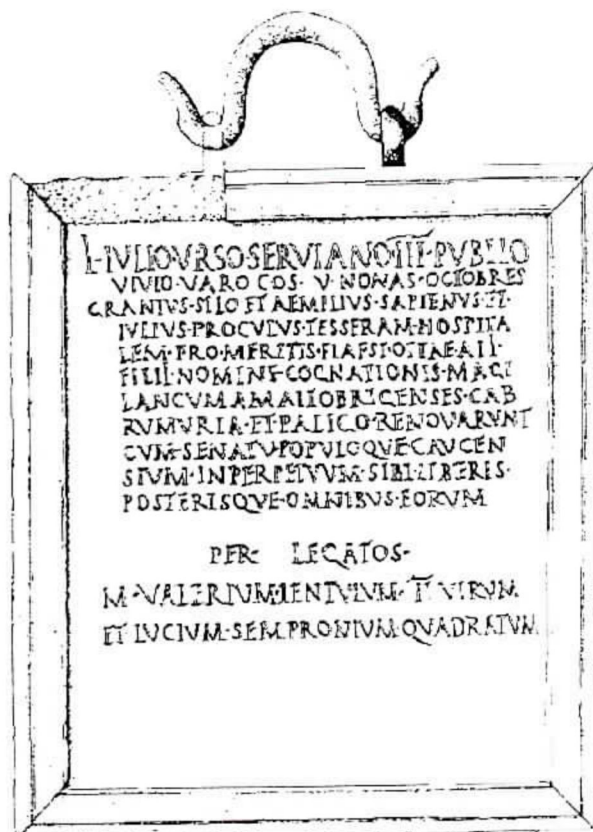 L·IVLIO·VRSO·SERVIANO·III·PVBLIO
VIVIO·VARO COS· V·NONAS·OCTOBRES
GRANIVS·SILO ET AEMILIVS·SAPIENVS·ET·
IVLIVS·PROCVLVS·TESSERAM·HOSPITA
LEM·PRO·MERITIS·
FILII·NOMINE·COGNATIONIS·MAGI
LANCVM·AMALLOBRIGENSES·CAB
RVMVRIA·ET·PALICO·RENOVARVNT
CVM·SENATV·POPVLOQVE·CAVCEN
SIVM·IN PERPETVVM·SIBI·LIBERIS·
POSTERISQVE·OMNIBVS·EORVM
PER· LEGATOS·
M·VALERIVM·LENTVLVM· II VIRVM
ET LVCIVM·SEMPRONIVM·QVADRATVM